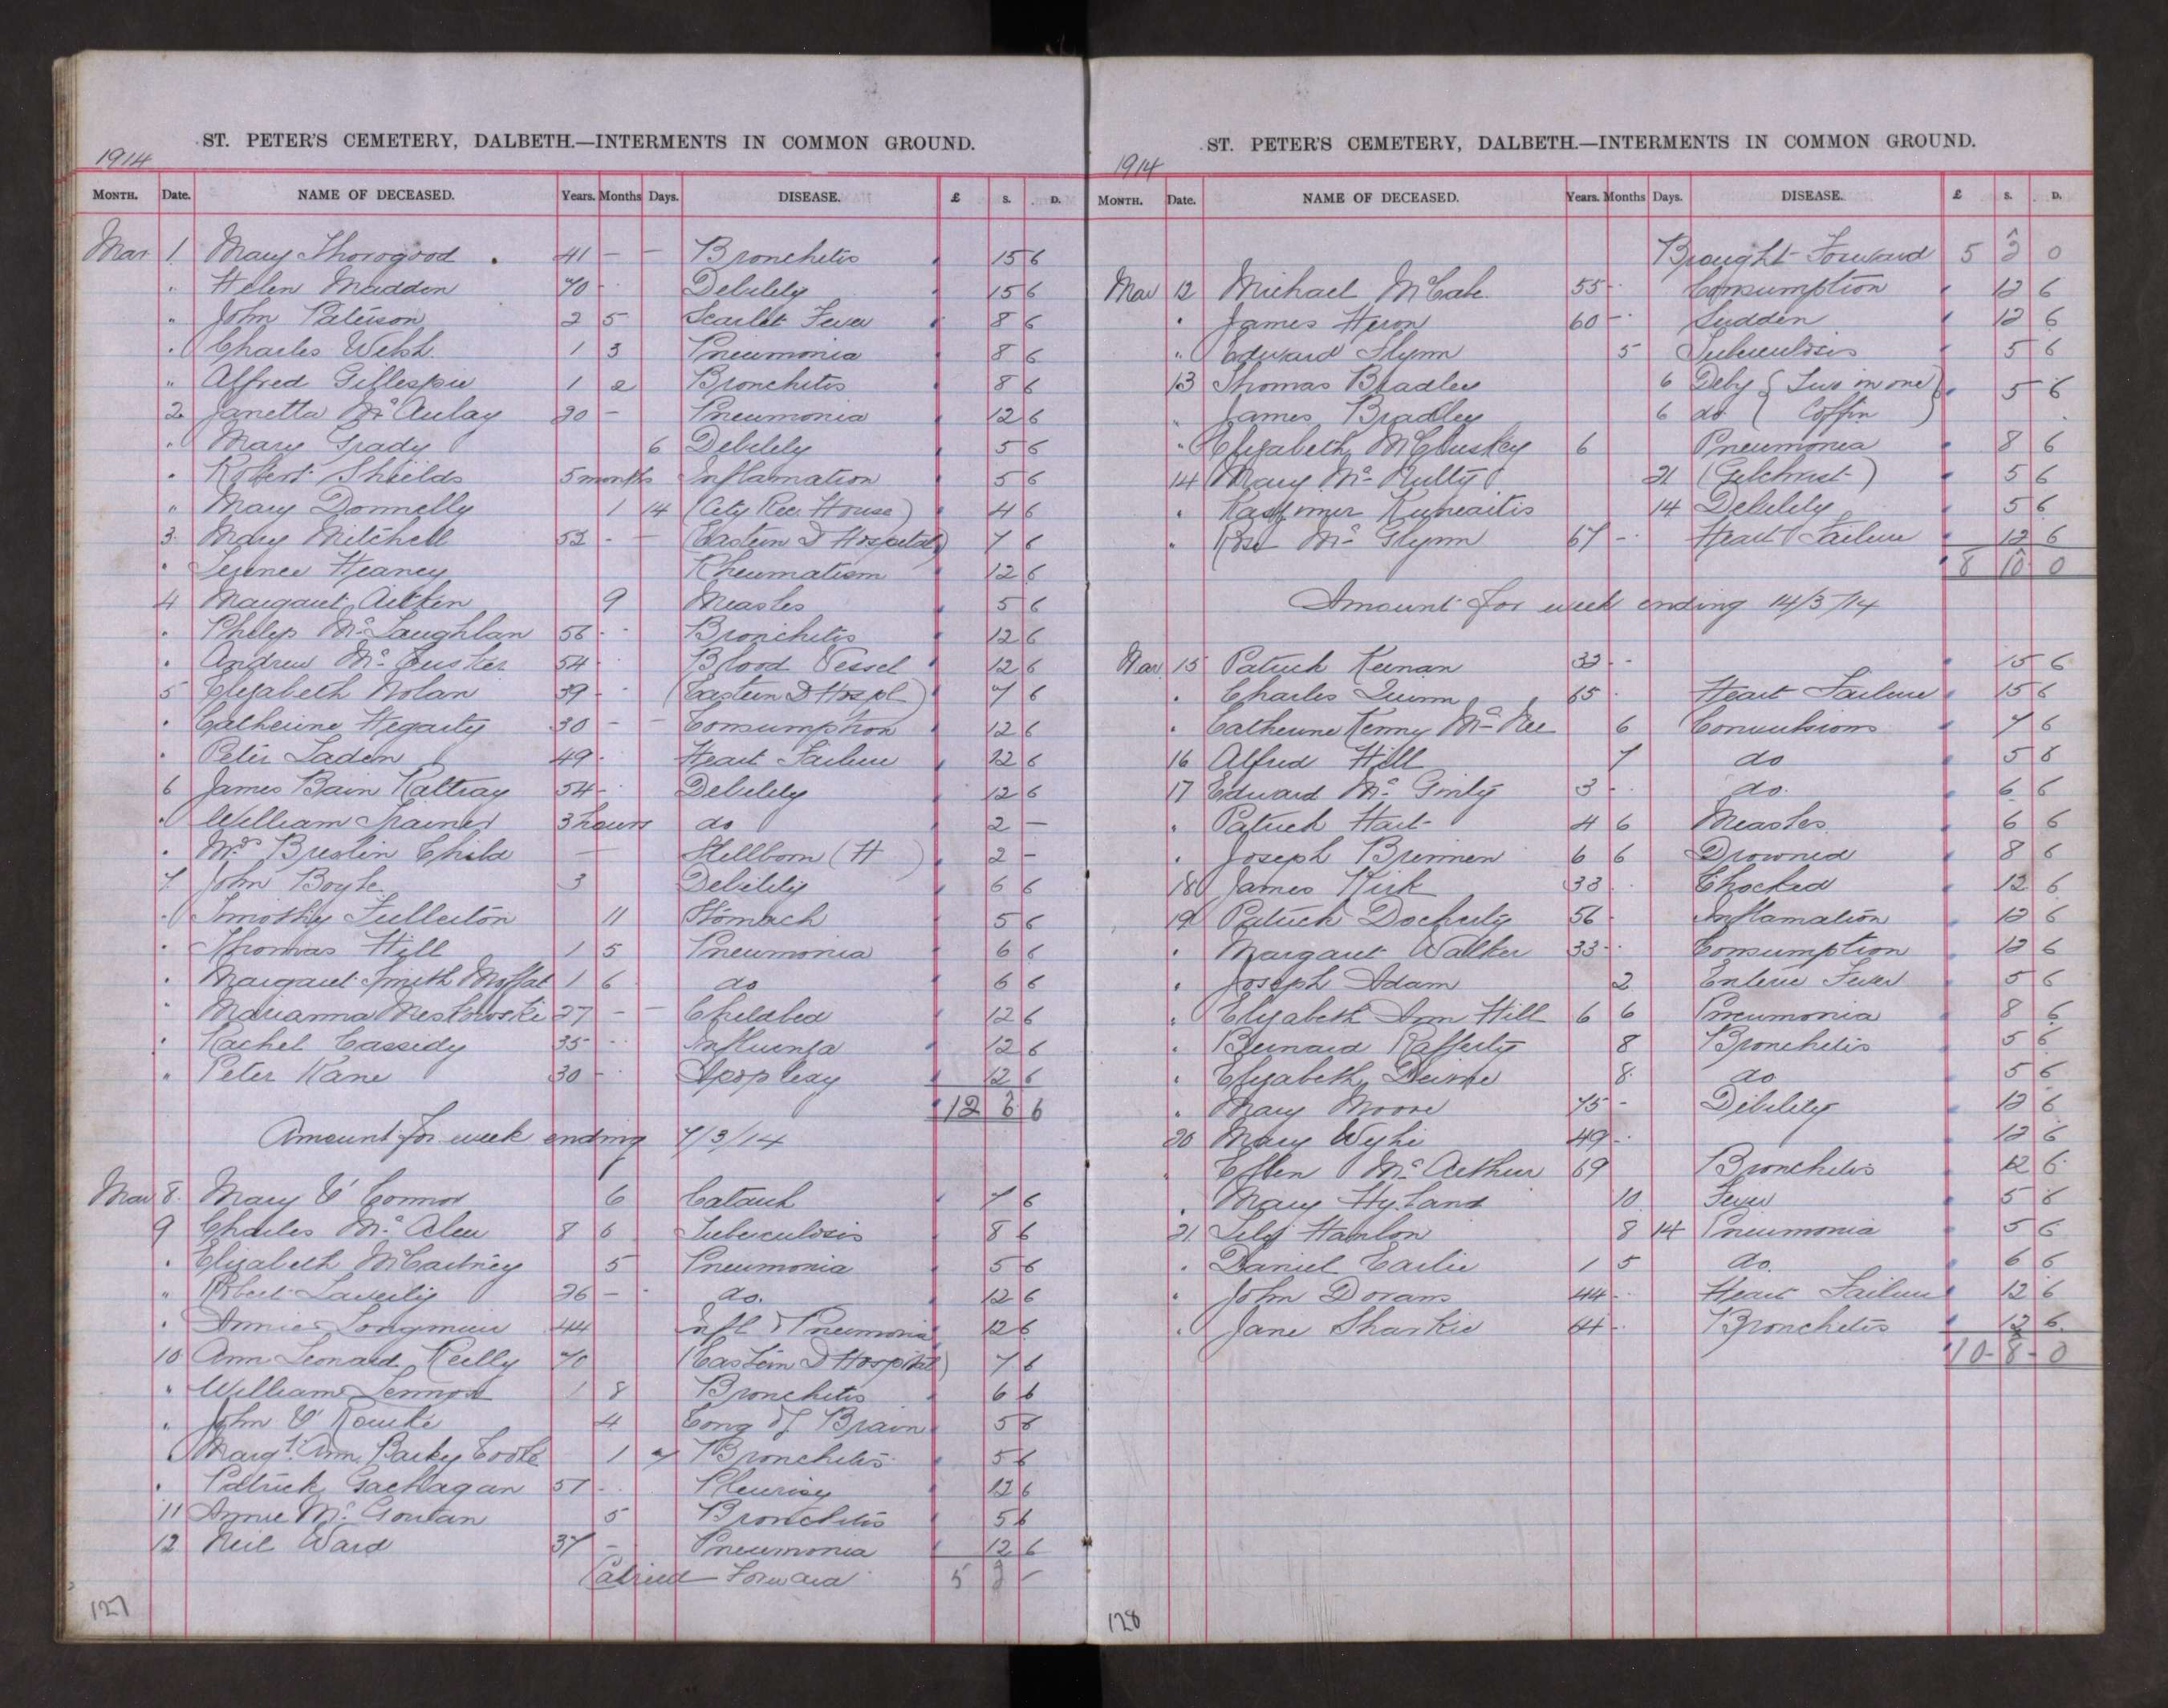 1914
ST. PETER'S CEMETERY, DALBETH.—INTERMENTS IN COMMON GROUND.
MONTH. Date. NAME OF DECEASED. Years. Months Days. DISEASE. £ S. D.
Mar 1 Mary Thorogood 41 - - Bronchitis 15 6
" Helen Madden 70 - Debility 15 6
" John Paterson 2 5 Scarlet Fever 8 6
" Charles Welsh 1 3 Pneumonia 8 6
" Alfred Gillespie 1 2 Bronchitis 8 6
2 Janetta Mc Aulay 20 - Pneumonia 12 6
" Mary Grady 6 Debility 5 6
" Robert Shields 5 months Inflamation 5 6
" Mary Donnelly 1 14 (City Rec. House) 4 6
3 Mary Mitchell 52 - - (Eastern D Hospital) 7 6
" Terence Heaney Rheumatism 12 6
4 Margaret Aitken 9 Measles 5 6
" Philip Mc Laughlan 56 - Bronchitis 12 6
" Andrew Mc Cusker 54 - Blood Vessel 12 6
5 Elizabeth Nolan 39 - (Eastern D Hospl) 7 6
" Catherine Hegarty 30 - - Consumption 12 6
" Peter Laden 49 - Heart Failure 12 6
6 James Bain Rattray 54 - Debility 12 6
" William Trainer 3 hours do 2 —
" Mrs Breslin Child — Stillborn (H ) 2 -
7 John Boyle 3 Debility 6 6
" Timothy Fullerton 11 Stomach 5 6
" Thomas Hill 1 5 Pneumonia 6 6
" Margaret Smith Moffat 1 6 do 6 6
" Marianna 27 - - Childbed 12 6
" Rachel Cassidy 35 - Influenza 12 6
" Peter Kane 30 - Apoplexy 12 6
12 6 6
Amount for week ending 7/3/14
Mar 8 Mary O' Connor 6 Catarrh 7 6
9 Charles Mc Aleer 8 6 Tuberculosis 8 6
" Elizabeth McCartney 5 Pneumonia 5 6
" Robert Laverty 26 - do. 12 6
" Annie Longmuir 44 Infl & Pneumonia 12 6
10 Ann Leonard Reilly 70 (Eastern D Hospital) 7 6
" William Lennox 1 8 Bronchitis 6 6
" John O' Rourke 4 Cong of Brain 5 6
" Margt Ann Cooke 1 7 Bronchitis 5 6
" Patrick Gachagan 51 - Pleurisy 12 6
11 Annie Mc Goulan 5 Bronchitis 5 6
12 Neil Ward 37 - Pneumonia 12 6
Carried Forward 5 2 -
127
1914
ST. PETER'S CEMETERY, DALBETH.—INTERMENTS IN COMMON GROUND.
MONTH. Date. NAME OF DECEASED. Years. Months Days. DISEASE. £ S. D.
Brought Forward 5 2 0
Mar 12 Michael McCabe 55 - Consumption 12 6
" James Heron 60 - Sudden 12 6
" Edward Flynn 5 Tuberculosis 5 6
13 Thomas Bradley 6 Deby { Two in one } 5 6
" James Bradley 6 do ( Coffin )
" Elizabeth McCluskey 6 Pneumonia 8 6
14 Mary Mc Nulty 21 (Gilchrist) 5 6
" Kasimer Kuneaitis 14 Debility 5 6
" Rose Mc Glynn 67 - Heart Failure 12 6
8 10 0
Amount for week ending 14/3/14
Mar 15 Patrick Keenan 32 - 15 6
" Charles Quinn 65 Heart Failure 15 6
" Catherine Kenny Mc Nee 6 Convulsions 7 6
16 Alfred Hill 7 do 5 6
17 Edward Mc Ginty 3 - do. 6 6
" Patrick Hart 4 6 Measles 6 6
" Joseph Brennen 6 6 Drowned 8 6
18 James Kirk 33 Chocked 12 6
19 Patrick Docherty 56 Inflamation 12 6
" Margaret Walker 33 - Consumption 12 6
" Joseph Adam 2 Enteric Fever 5 6
" Elizabeth Ann Hill 6 6 Pneumonia 8 6
" Bernard Rafferty 8 Bronchitis 5 6
" Elizabeth 8 do 5 6
" Mary Moore 75 - Debility 12 6
20 Mary Wylie 49 - 12 6
" Ellen Mc Arthur 69 Bronchitis 12 6
" Mary Hyland 10 Fever 5 6
21 Lily Hanlon 8 14 Pneumonia 5 6
" Daniel Earlie 1 5 do. 6 6
" John Dorans 44 - Heart Failure 12 6
" Jane Sharkie 44 - Bronchitis 12 6
10 - 8 - 0
128